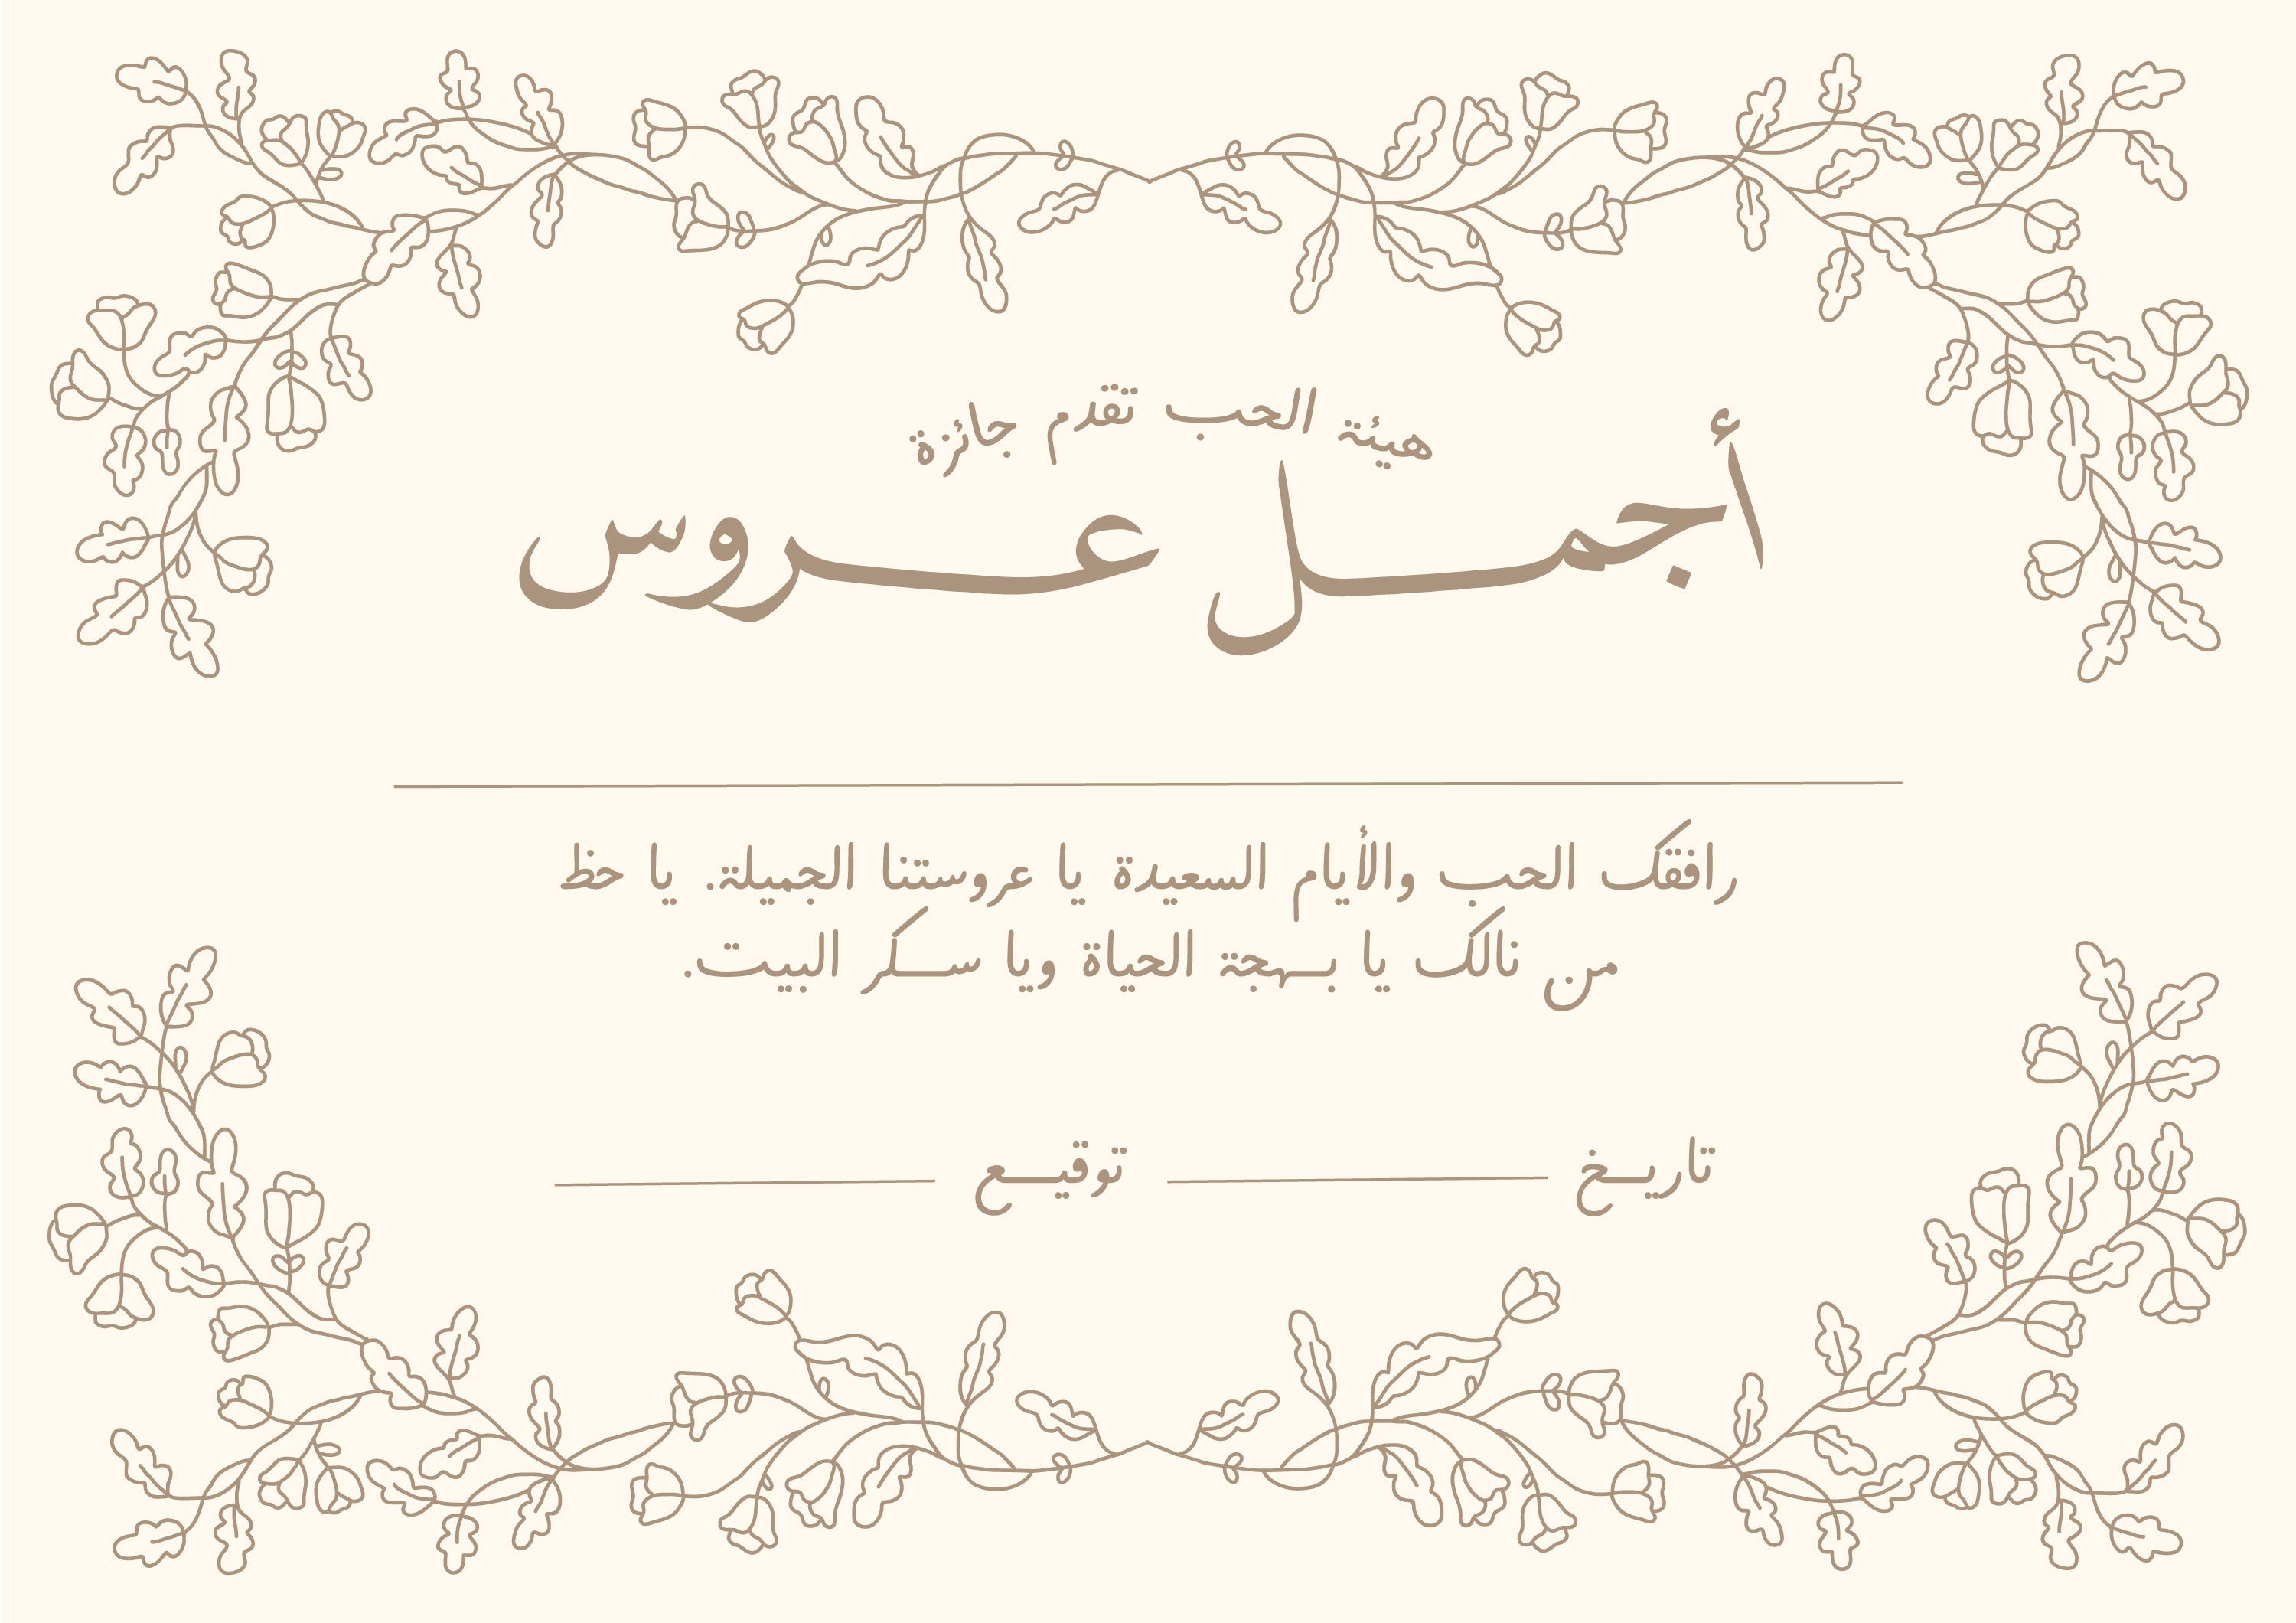 هيئة الحب تقدم جائزة
أجمل عروس
رافقك الحب والأيام السعيدة يا عروستنا الجميلة. يا حظ
من نالك يا بهجة الحياة ويا سكر البيت.
تاريخ توقيع